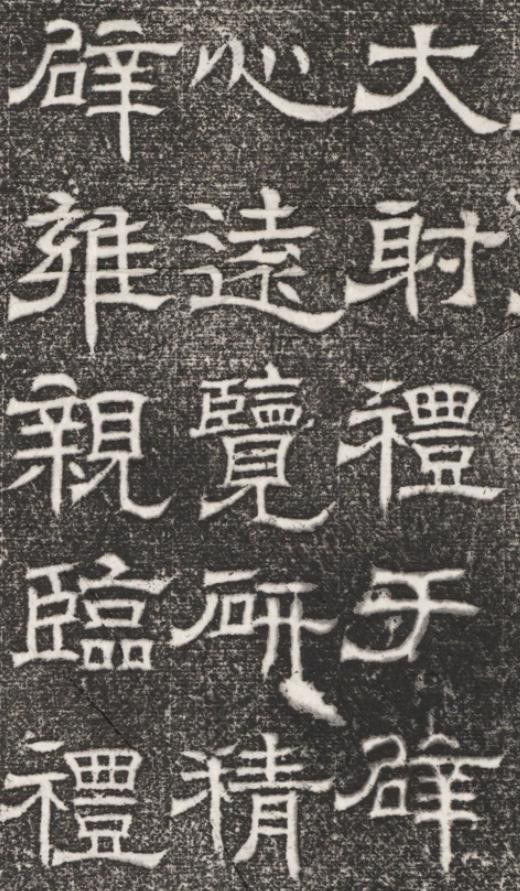 大射禮于辟
心遠覽研精
辟雍親臨禮